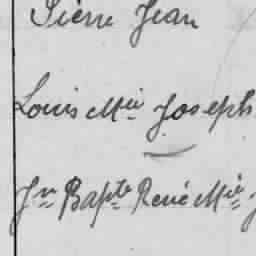 Pierre Jean
Louis Mie Joseph
Jn Bapte René Mie J